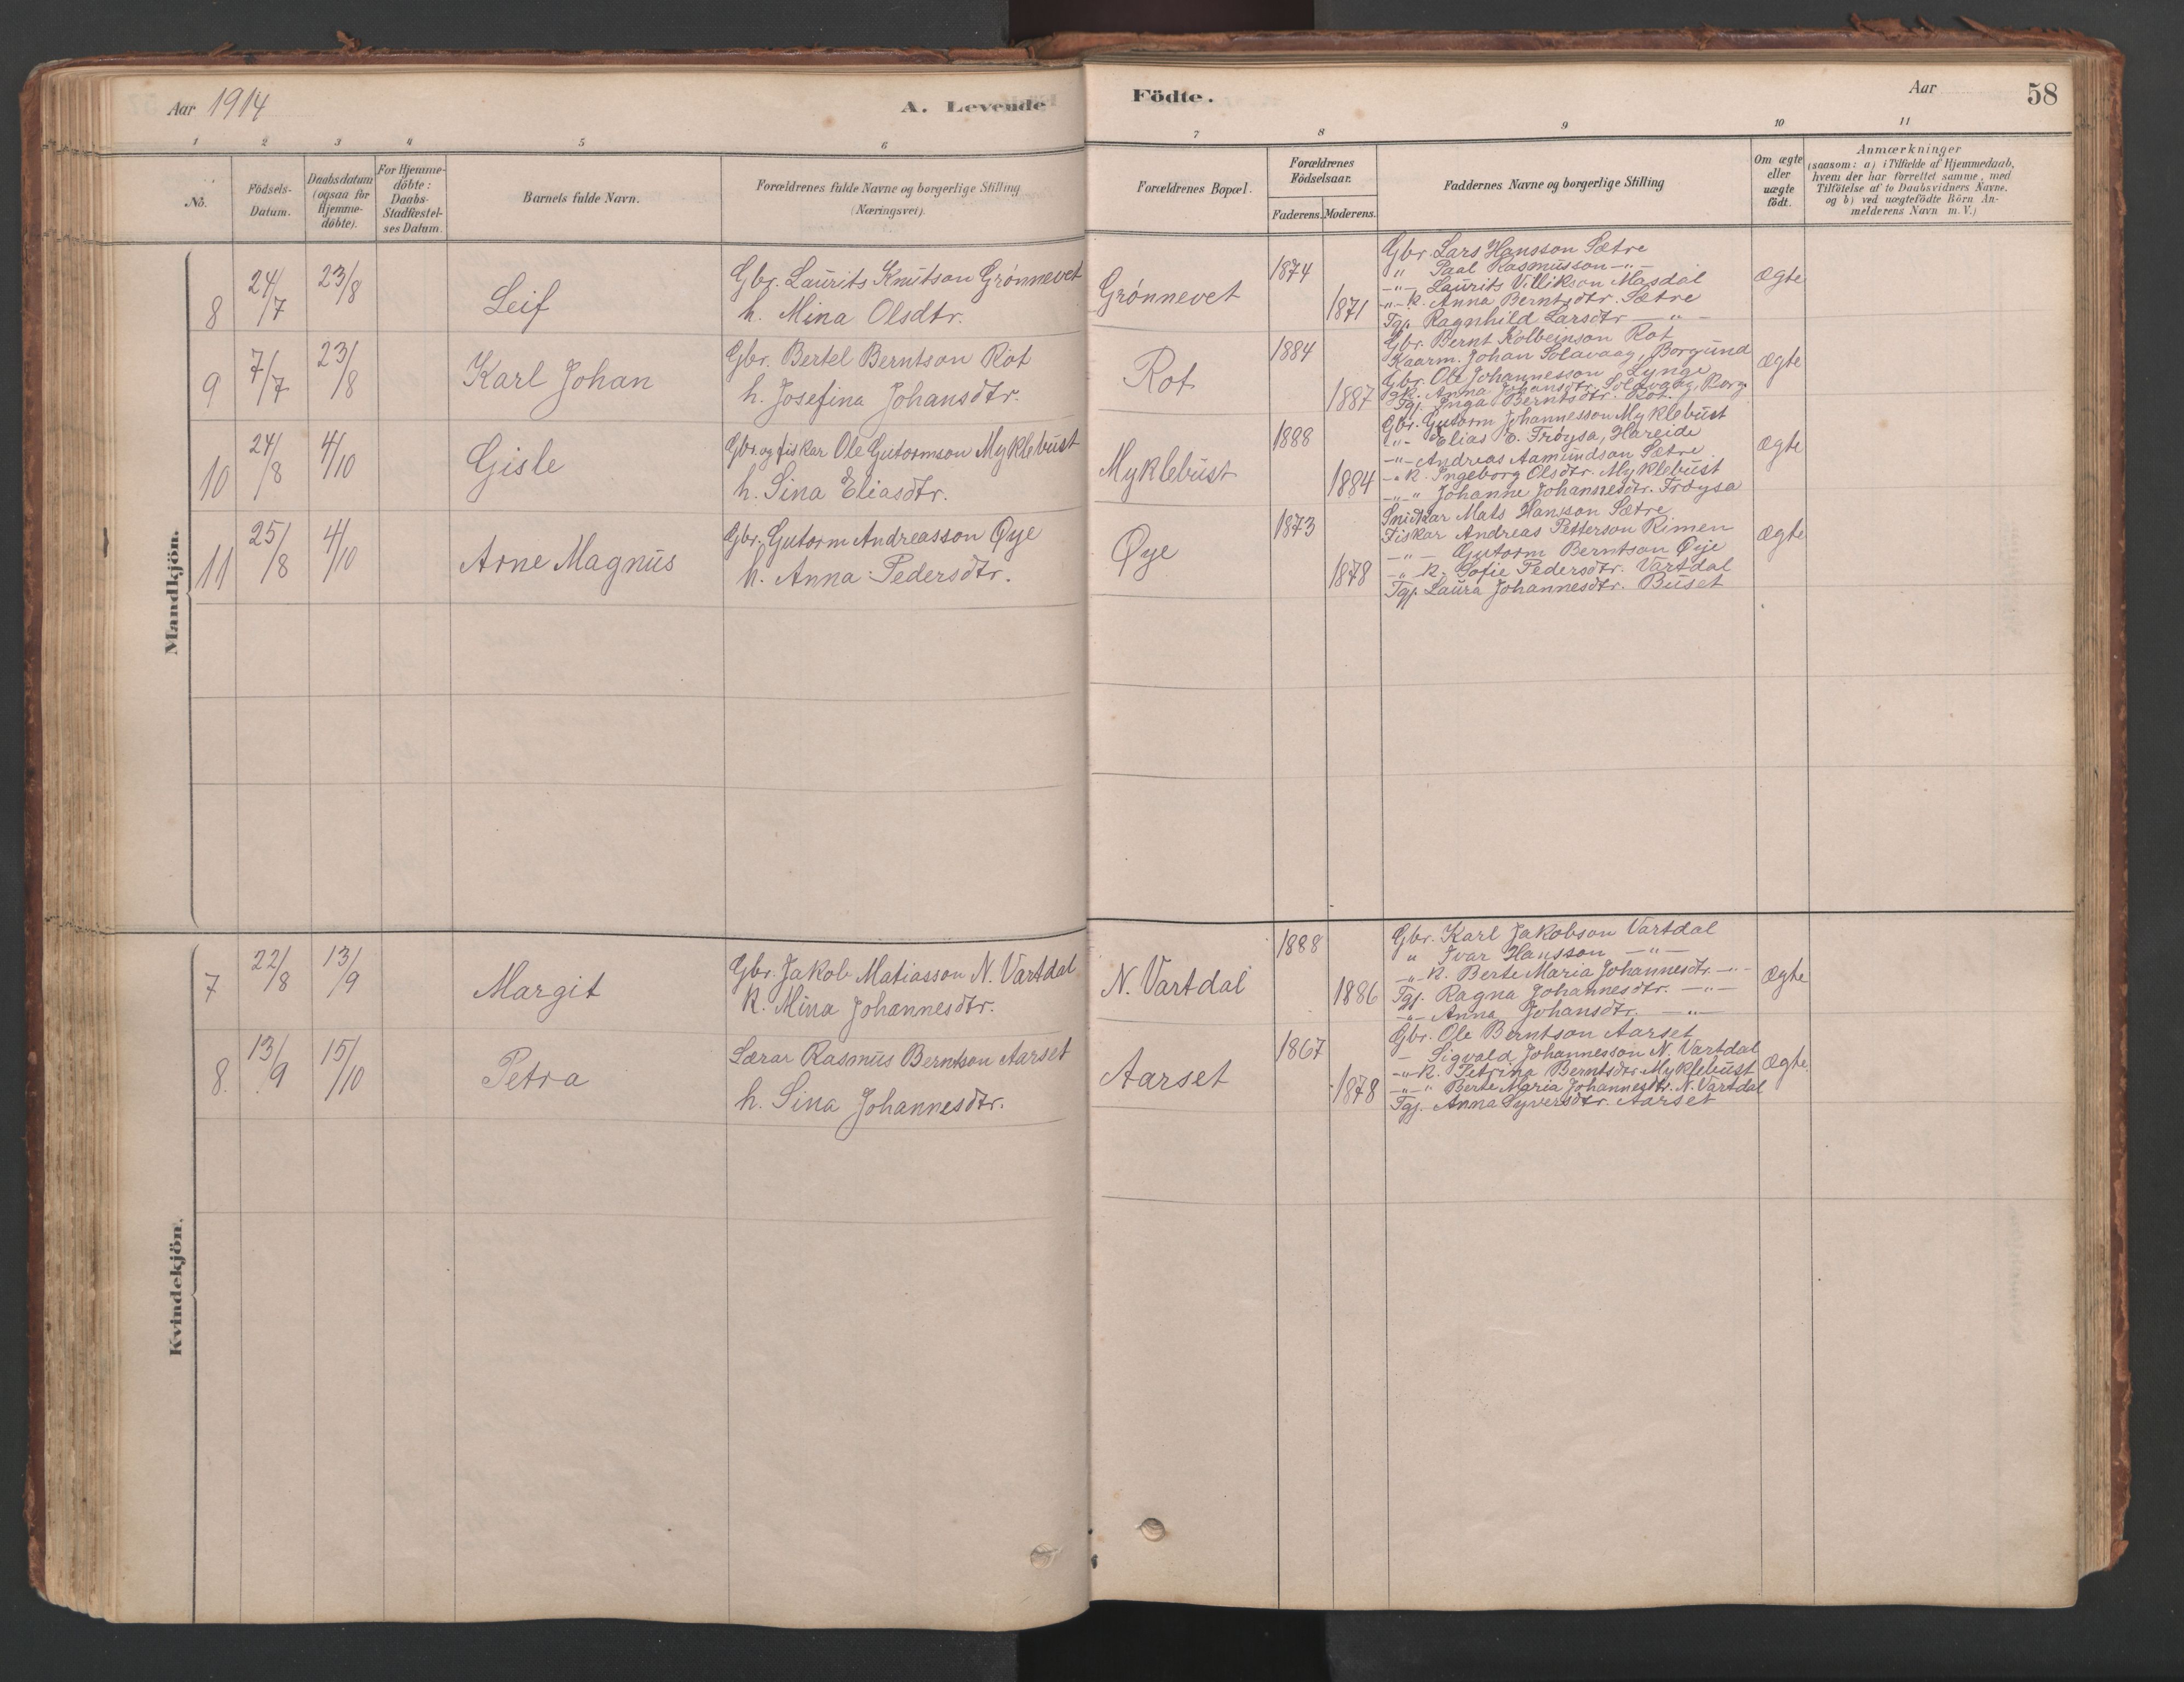 Aar 1914
A. Levende
Födte.
Aar
58
1 2 3 4 5 6 7 8 9 10 11
No.
Födsels-Datum.
Daabsdatum (ogsaa for Hjemme-döbte).
For Hjemme-döbte: Daabs-Stadfæstel-ses Datum.
Barnets fulde Navn.
Forældrenes fulde Navne og borgerlige Stilling (Næringsvei).
Forældrenes Bopæl.
Forældrenes Födselsaar.
Faderens. Moderens.
Faddernes Navne og borgerlige Stilling
Om ægte eller uægte födt.
Anmærkninger
(saasom: a) i Tilfælde af Hjemmedaab,
hvem der har forrettet samme, med
Tilföielse af to Daabsvidners Navne.
og b) ved uægtefödte Börn An-
melderens Navn m. V.)
Mandkjön.
8 24/7 23/8 Leif
Gbr. Laurits Knutson Grønnevet
h. Mina Olsdtr.
Grønnevet 1874 1871
Gbr. Lars Hansson Sætre
" Paal Rasmusson -"-
-"- Laurits Villikson Masdal
-"- K. Anna Berntsdtr. Sætre
Tgj. Ragnhild Larsdtr -"-
Ægte
9 7/7 23/8 Karl Johan
Gbr. Bertel Berntson Rot
h. Josefina Johansdtr.
Rot 1884 1887
Gbr. Bernt Kolbeinson Rot
Kaarm. Johan Solavaag, Borgund
Gbr. Ole Johannesson Lynge
Gk. Anna Johansdtr. Solavaag, Borg
Tgj. Inga Berntsdtr. Rot.
Ægte
10 24/8 4/10 Gisle
Gbr. og fiskar Ole Gutormson Myklebust
h. Sina Eliasdtr.
Myklebust 1888 1884
Gbr. Gutorm Johannesson Myklebust
-"- Elias E. Frøysa, Hareide
-"- Andreas Aamundson Sætre
-"- K. Ingeborg Olsdtr. Myklebust
-"- " Johanne Johannesdtr. Frøysa
Ægte
11 25/8 4/10 Arne Magnus
Gbr. Gutorm Andreasson Øye
h. Anna Pedersdtr.
Øye 1873 1878
Snidkar Mats Hansson Sætre
Fiskar Andreas Petterson Rimen
-"- Gutorm Berntson Øye
-"- K. Sofie Pedersdtr. Vartdal
Tgj. Laura Johannesdtr. Buset
Ægte
Kvindekjön.
7 22/8 13/9 Margit
Gbr. Jakob Matiasson N. Vartdal
K. Mina Johannesdtr.
N. Vartdal 1888 1886
Gbr. Karl Jakobson Vartdal
" Ivar Hansson -"-
-"- K. Berte Maria Johannesdtr. -"-
Tgj. Ragna Johannesdtr. -"-
-"- Anna Johansdtr. -"-
Ægte
8. 13/9 15/10 Petra
Lærar Rasmus Berntson Aarset
h. Sina Johannesdtr.
Aarset 1867 1878
Gbr. Ole Berntson Aarset
- Sigvald Johannesson N. Vartdal
-"- K. Petrina Berntsdtr Myklebust
-"- " Berte Maria Johannesdtr. N. Vartdal
Tgj. Anna Syversdtr. Aarset
Ægte.